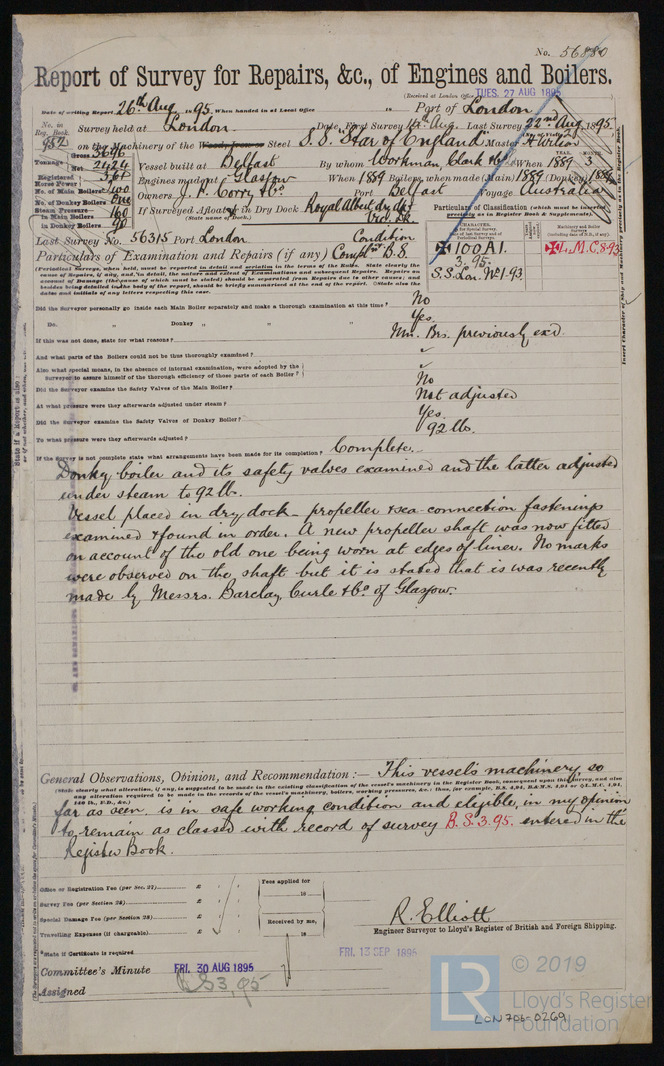 No. 56880
Report of Survey for Repairs, &c., of Engines and Boilers.
(Received at London Office TUES. 27 AUG 1895
Date of writing Report 26th Aug 1895. When handed in at Local Office 18 Port of London
No. in Reg. Book. 952
Survey held at London Date, First Survey Aug. Last Survey 22nd Aug. 1895
on the Machinery of the Wood, Iron or Steel S.S. "Star of England" Master
Tonnage Gross 3696 Net 2429
Vessel built at Belfast By whom Workman, Clark & Co When 1889 3
Registered Horse Power
Engines made at Glasgow When 1889 Boilers, when made (Main) 1889 (Donkey) 1889
No. of Main Boilers two
Owners J. P. Corry & Co Port Belfast Voyage Australia
No. of Donkey Boilers One
Steam Pressure in Main Boilers 160
in Donkey Boilers 90
If Surveyed Afloat or in Dry Dock Royal Albert dry dk &
(State name of Dock.) Vic. Dk.
Particulars of Classification (which must be inserted precisely as in Register Book & Supplements).
Last Survey No. 56315 Port London Condition
Particulars of Examination and Repairs (if any) B.S.
100A1.
3.95.
S.S. Lon. No1.93
L.M.C.3.93
(Periodical Surveys, when held, must be reported in detail and seriatim in the terms of the Rules. State clearly the
cause of Repairs, if any, and, in detail, the nature and extent of Examinations and subsequent Repairs. Repairs on
account of Damage (the cause of which must be stated) should be separated from Repairs due to other causes; and
besides being detailed in the body of the report, should be briefly summarised at the end of the report. State also the
dates and initials of any letters respecting this case.
Did the Surveyor personally go inside each Main Boiler separately and make a thorough examination at this time? No
Do. " Donkey " " " Yes
If this was not done, state for what reasons? Mn. Brs. previously exd.
And what parts of the Boilers could not be thus thoroughly examined?
Also what special means, in the absence of internal examination, were adopted by the
Surveyor to assure himself of the thorough efficiency of those parts of each Boiler?
Did the Surveyor examine the Safety Valves of the Main Boiler? No
At what pressure were they afterwards adjusted under steam? Not adjusted
Did the Surveyor examine the Safety Valves of Donkey Boiler? Yes
To what pressure were they afterwards adjusted? 92 lb.
If the Survey is not complete state what arrangements have been made for its completion? Complete.
Donky boiler and its safety valves examined and the latter adjusted
under steam to 92 lb.
Vessel placed in dry dock - propeller & sea connection fastenings
examined & found in order. A new propeller shaft was now fitted
on account of the old one being worn at edges of liner. No marks
were observed on the shaft but it is stated that is was recently
made by Messrs. Barclay Curle & Co of Glasgow.
General Observations, Opinion, and Recommendation :— This vessel's machinery, so
(State clearly what alteration, if any, is suggested to be made in the existing classification of the vessel's machinery in the Register Book, consequent upon this survey, and also
any alteration required to be made in the records of the vessel's machinery, boilers, working pressures, &c.; thus, for example, B.S. 4,94, B.&M.S. 4,94 or L.M.C. 4,94,
140 lb., F.D., &c.)
far as seen, is in safe working condition and eligible, in my opinion
to remain as classed with record of survey B.S. 3.95. entered in the
Register Book.
Office or Registration Fee (per Sec. 27) £ : :
Survey Fee (per Section 26) £ : :
Special Damage Fee (per Section 28) £ : :
Travelling Expenses (if chargeable) £ : :
Fees applied for
18
Received by me,
18
R. Elliott
Engineer Surveyor to Lloyd's Register of British and Foreign Shipping.
*State if Certificate is required
FRI. 13 SEP 1895
Committee's Minute FRI. 30 AUG 1895
Assigned BS 3,95
LR © 2019
Lloyd's Register
Foundation
LCN706-0269